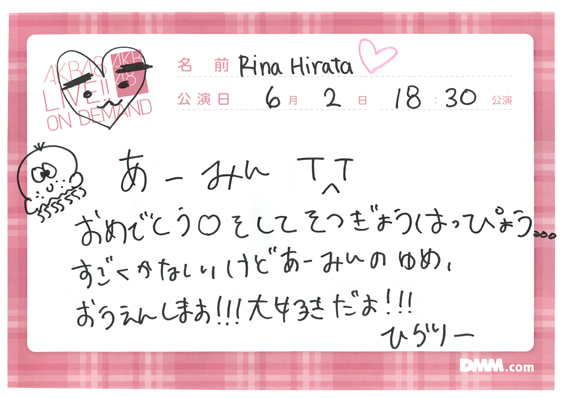 AKB48
LIVE!!
ON DEMAND
名 前 Rina Hirata
公演日 6月 2日 18:30 公演
あーみん T^T
おめでとう○ そしてそつぎょうはっぴょう...
すごくかなしいけどあーみんのゆめ、
おうえんしまぁ!!!大好きだよ!!!
ひらりー
DMM.com